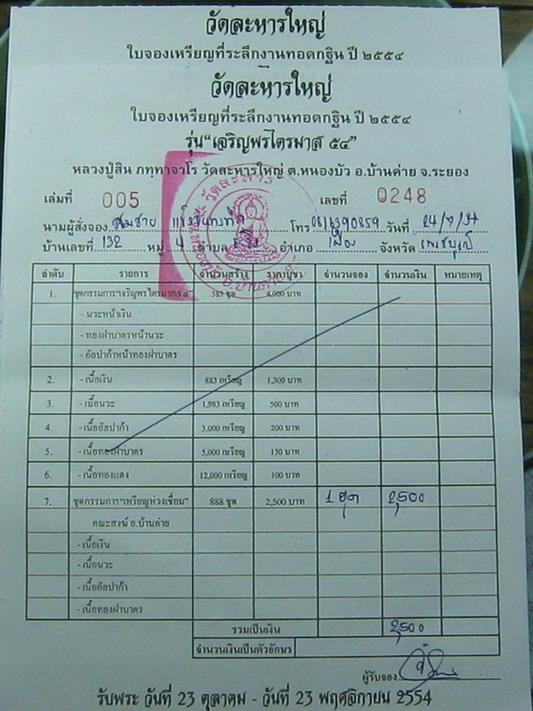 วัดละหารใหญ่
ใบจองเหรียญที่ระลึกงานทอดกฐิน ปี ๒๕๕๔
วัดละหารใหญ่
ใบจองเหรียญที่ระลึกงานทอดกฐิน ปี ๒๕๕๔
รุ่น"เจริญพรไตรมาส ๕๔"
หลวงปู่สิน ภทฺทาจาโร วัดละหารใหญ่ ต.หนองบัว อ.บ้านค่าย จ.ระยอง
เล่มที่ 005 เลขที่ 0248
นามผู้สั่งจอง สมชาย โทร 0816890859 วันที่ 24/7/54
บ้านเลขที่ 132 หมู่ 4 ตำบล อำเภอ เมือง จังหวัด เพชรบูรณ์
ลำดับ รายการ จำนวนสร้าง ราคาบูชา จำนวนจอง จำนวนเงิน หมายเหตุ
1. ชุดกรรมการ"เจริญพรไตรมาส๕๔" 383 ชุด 4,000 บาท
- นวะหน้าเงิน
- ทองฝาบาตรหน้านวะ
- อัลปาก้าหน้าทองฝาบาตร
2. - เนื้อเงิน 883 เหรียญ 1,300 บาท
3. - เนื้อนวะ 1,983 เหรียญ 500 บาท
4. - เนื้ออัลปาก้า 3,000 เหรียญ 200 บาท
5. - เนื้อทองฝาบาตร 5,000 เหรียญ 150 บาท
6. - เนื้อทองแดง 12,000 เหรียญ 100 บาท
7. ชุดกรรมการ"เหรียญห่วงเชื่อม" 888 ชุด 2,500 บาท 1 ชุด 2,500
คณะสงฆ์ อ.บ้านค่าย
- เนื้อเงิน
- เนื้อนวะ
- เนื้ออัลปาก้า
- เนื้อทองฝาบาตร
รวมเป็นเงิน 2,500
จำนวนเงินเป็นตัวอักษร
ผู้รับจอง
รับพระ วันที่ 23 ตุลาคม - วันที่ 23 พฤศจิกายน 2554